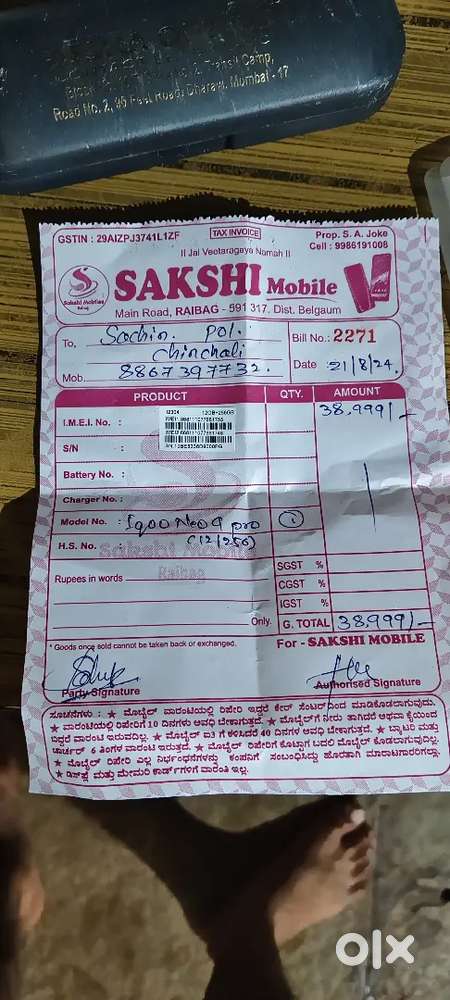 Road No. 2, 95 Feet Road, Dharavi, Mumbai - 17
GSTIN : 29AIZPJ3741L1ZF
TAX INVOICE
Prop. S. A. Joke
Cell : 9986191008
II Jai Veetaragaya Namah II
SAKSHI Mobile
Sakshi Mobiles
Raibag
Main Road, RAIBAG - 591 317. Dist. Belgaum
To, Sachin. Pol.
Chinchali
Mob. 8867397732.
Bill No.: 2271
Date :21/8/24.
PRODUCT QTY. AMOUNT
I.M.E.I. No. :
12GB+256GB
38,999/-
S/N :
Battery No. :
Charger No. :
Model No. : Iqoo Neo 9 pro 1
H.S. No. : (12/256)
Sakshi Mobile
Raibag
Rupees in words
SGST %
CGST %
IGST %
Only. G. TOTAL 38,999/-
* Goods once sold cannot be taken back or exchanged.
For - SAKSHI MOBILE
Party Signature
Authorised Signature
ಸೂಚನೆಗಳು : ★ ಮೊಬೈಲ್ ವಾರಂಟಿಯಲ್ಲಿ ರಿಪೇರಿ ಇದ್ದರೆ ಕೇರ್ ಸೆಂಟರ್‌ನಿಂದ ಮಾಡಿಕೊಡಲಾಗುವುದು.
★ ವಾರಂಟಿಯಲ್ಲಿ ರಿಪೇರಿಗೆ 10 ದಿನಗಳು ಅವಧಿ ಬೇಕಾಗುತ್ತದೆ. ★ ಮೊಬೈಲ್‌ಗೆ ನೀರು ತಾಗಿದರೆ ಅಥವಾ ಕೈಯಿಂದ
ಬಿದ್ದರೆ ವಾರಂಟಿ ಇರುವುದಿಲ್ಲ. ★ ಮೊಬೈಲ್ ಐ3 ಗೆ ಕಳಿಸಿದರೆ 40 ದಿನಗಳು ಅವಧಿ ಬೇಕಾಗುತ್ತದೆ. ★ ಬ್ಯಾಟರಿ ಮತ್ತು
ಚಾರ್ಜರ್ 6 ತಿಂಗಳ ವಾರಂಟಿ ಇರುತ್ತದೆ. ★ ಮೊಬೈಲ್ ರಿಪೇರಿಗೆ ಕೊಟ್ಟಾಗ ಬದಲಿ ಮೊಬೈಲ್ ಕೊಡಲಾಗುವುದಿಲ್ಲ.
★ ಮೊಬೈಲ್ ರಿಪೇರಿ ಎಲ್ಲ ನಿರ್ಭಂಧನೆಗಳನ್ನು ಕಂಪನಿಗೆ ಸಂಬಂಧಿಸಿದ್ದು ಹೊರತಾಗಿ ಮಾರಾಟಗಾರರಿಗಲ್ಲಾ.
★ ಡಿಸ್‌ಪ್ಲೆ ಮತ್ತು ಮೇಮರಿ ಕಾರ್ಡ್‌ಗಳಿಗೆ ವಾರಂತಿ ಇಲ್ಲ.
olx